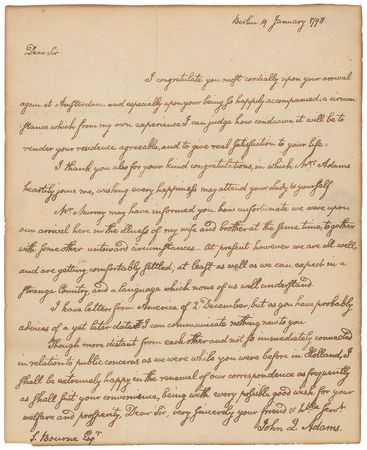 Berlin 19 January 1798
Dear Sir
I congratulate you most cordially upon your arrival
again at Amsterdam and especially upon your being so happily accompanied, a circum-
stance which from my own experience I can judge how conducive it will be to
render your residence agreeable, and to give real satisfaction to your life.
I thank you also for your kind congratulations, in which Mrs Adams
heartily joins me, wishing every happiness may attend your lady & yourself
Mr. Murray may have informed you how unfortunate we were upon
our arrival here in the illness of my wife and brother at the same time, together
with some other untoward circumstances— At present however we are all well,
and are getting comfortably settled, at least as well as we can expect in a
strange Country, and a language which none of us well understand.
I have letters from America of 2 December, but as you have probably
advices of a yet later date I can communicate nothing new to you
Though more distant from each other and not so immediately connected
in relation to public concerns as we were while you were before in Holland, I
shall be extremely happy in the renewal of our correspondence as frequently
as shall suit your convenience, being with every possible good wish for your
welfare and prosperity, Dear Sir, very sincerely your friend & hble Servt
John Q Adams.
S. Bourne Esqr